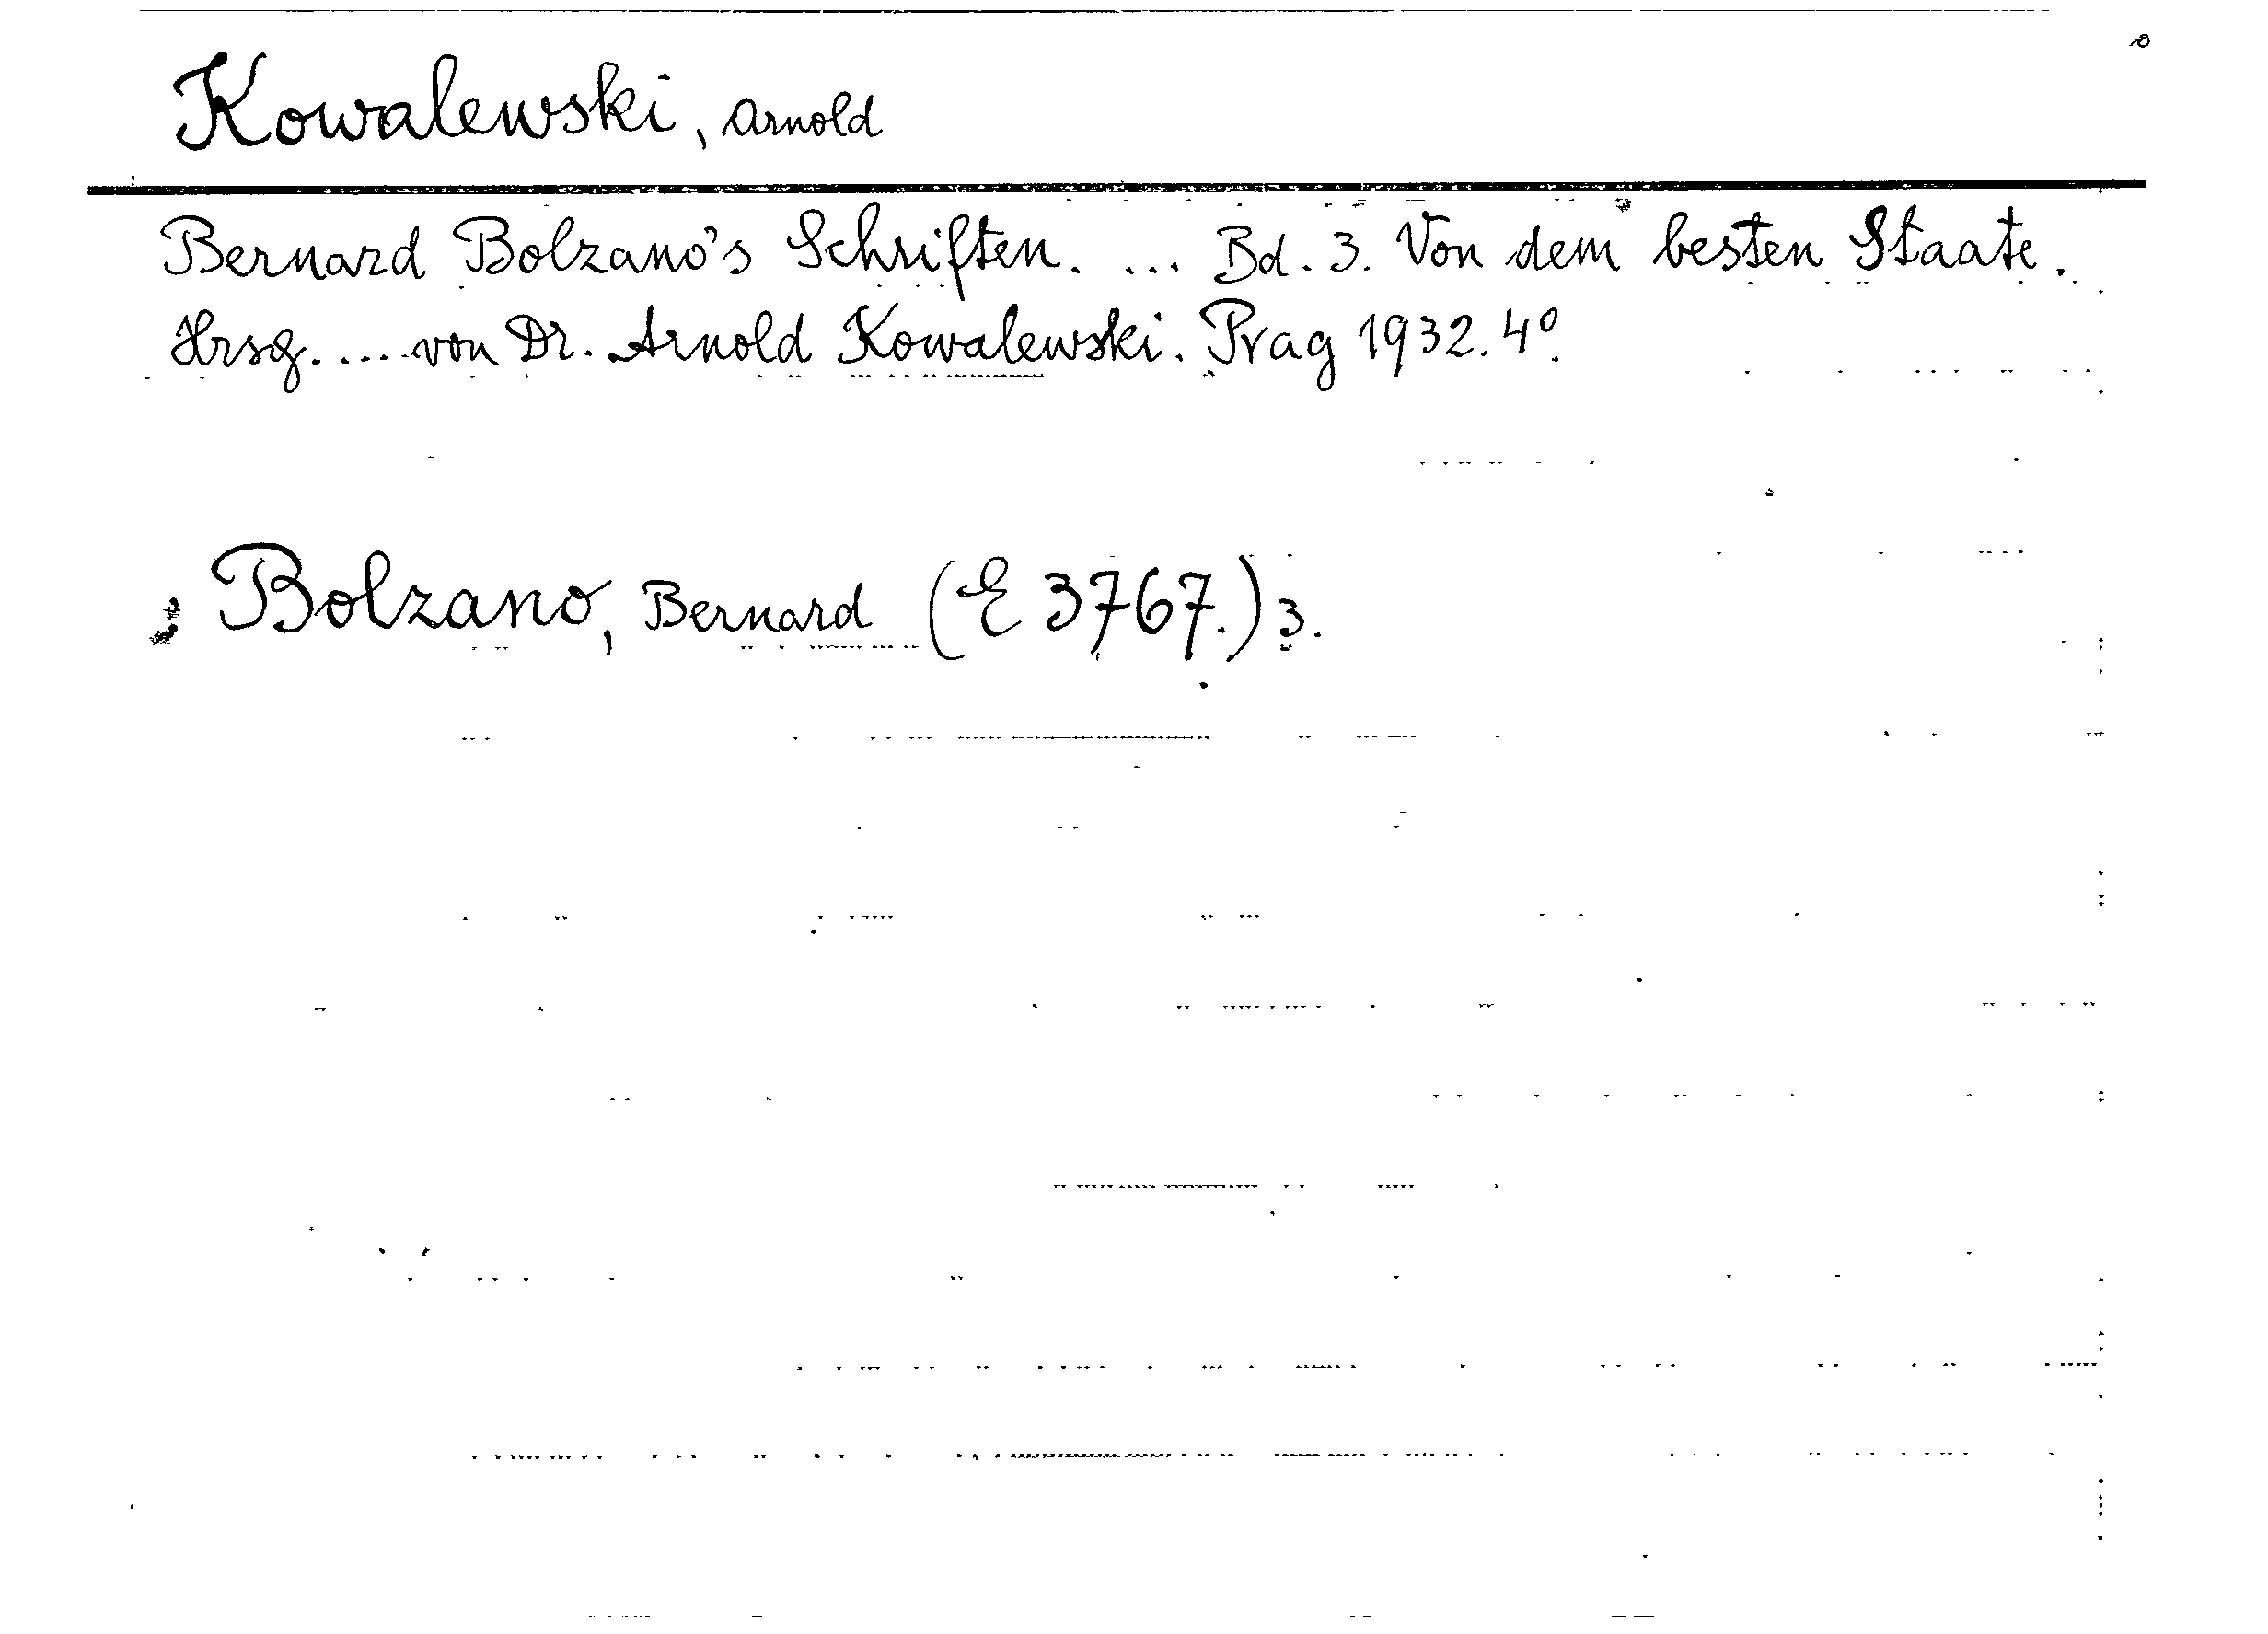 Kowalewski, Arnold
Bernard Bolzano's Schriften. ... Bd. 3. Von dem besten Staate.
Hrsg. .... von Dr. Arnold Kowalewski. Prag 1932. 4º.
Bolzano, Bernard (E 3767.) 3.